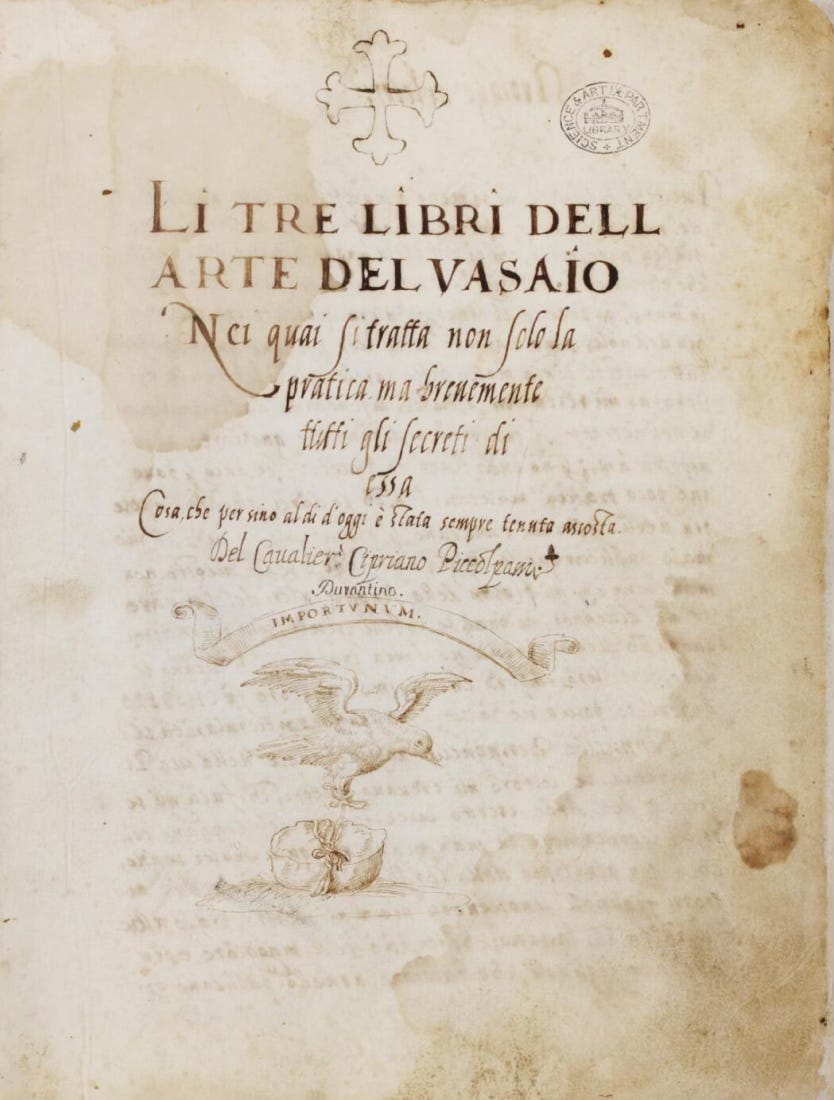 SCIENCE & ART DEPARTMENT
LIBRARY
LI TRE LIBRI DELL
ARTE DEL VASAIO
Nei quai si tratta non solo la
pratica ma brevemẽte
tutti gli secreti di
essa
Cosa, che persino al di d'oggi è stata sempre tenuta ascosta.
Del Cavalier Cipriano Piccolpassi
Durantino.
IMPORTVNVM.